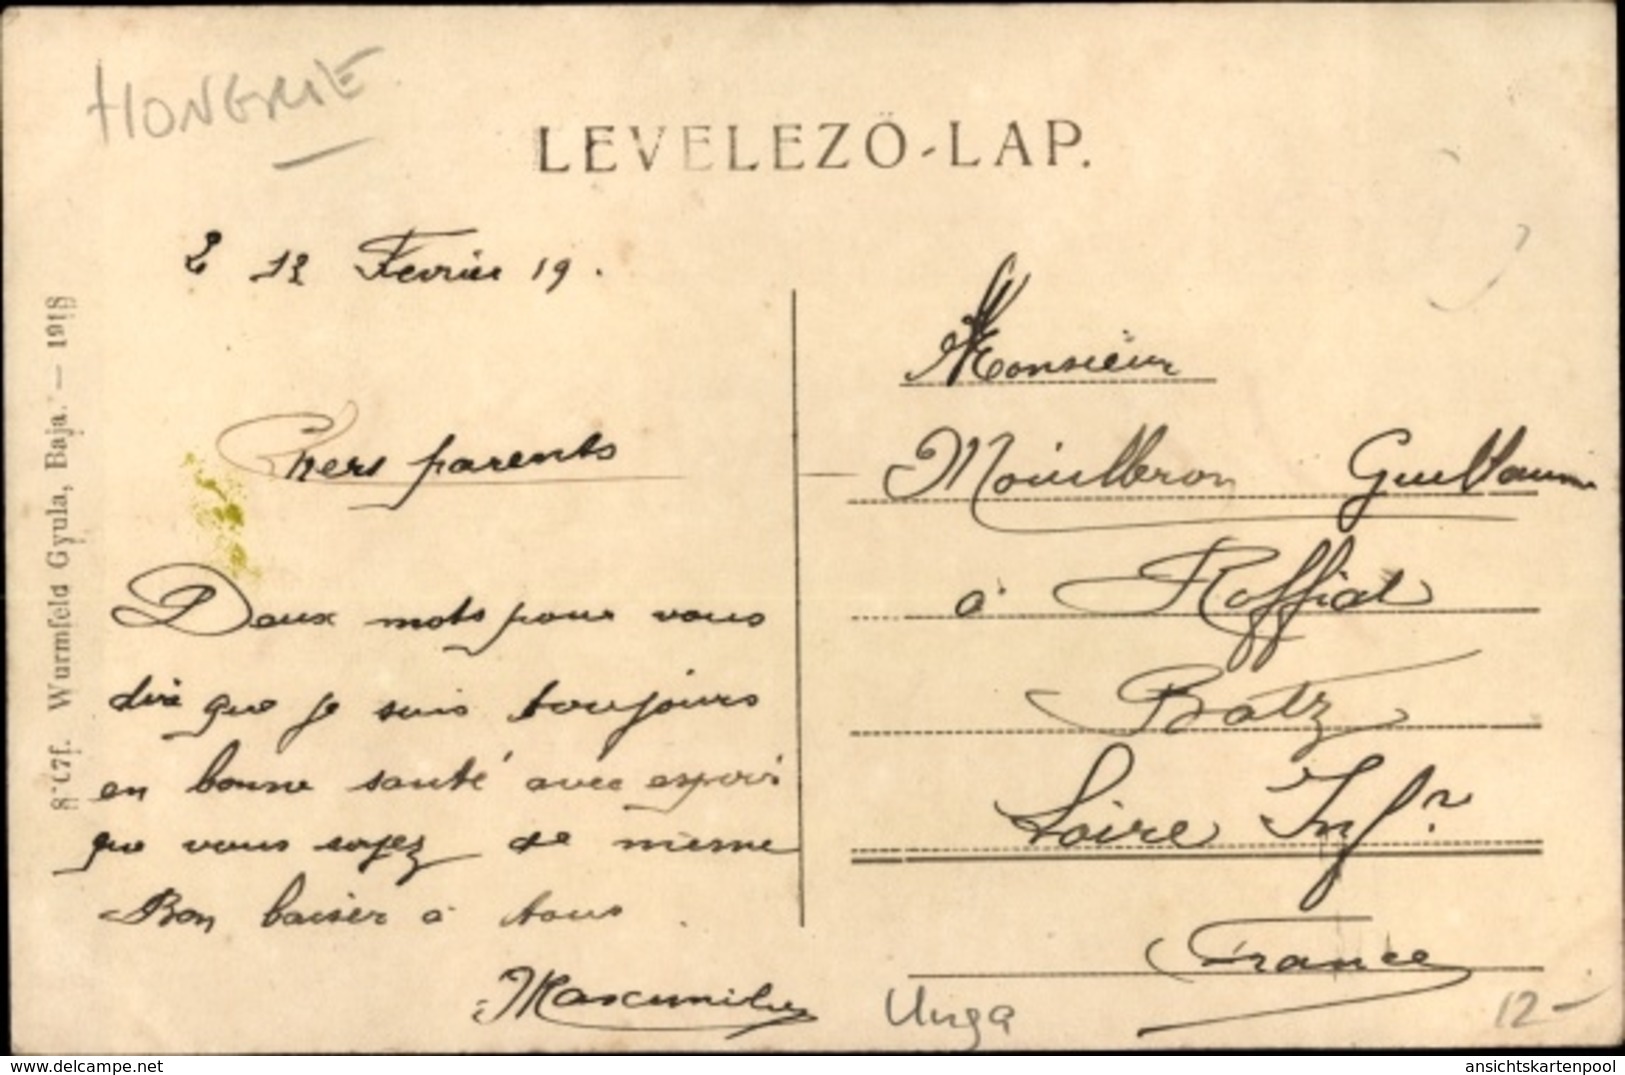 HONGRIE
LEVELEZŐ-LAP.
12 Fevrier 19.
Chers parents
Deux mots pour vous
dire que je suis toujours
en bonne santé avec espoir
que vous soyez de meme
Bon baiser a tous
Monsieur
Guillaume
à Roffiat
Batz
Loire Infr
France
Wurmfeld Gyula, Baja. — 1918
Unga
12-
delcampe.net
ansichtskartenpool